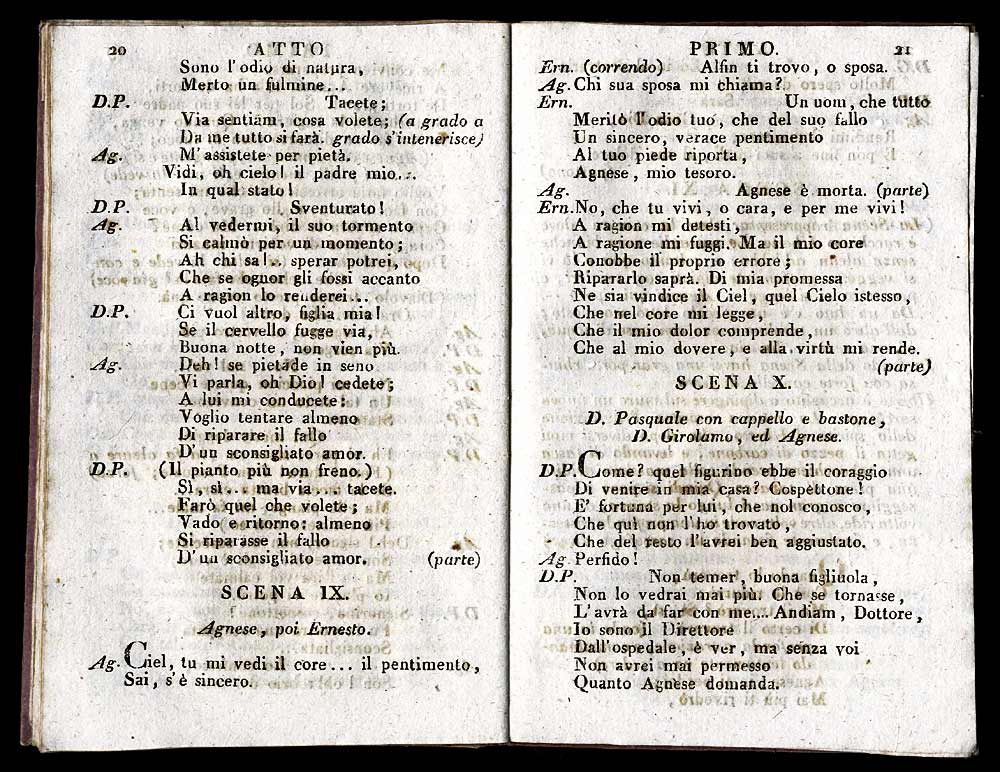 20 ATTO
Sono l'odio di natura,
Merto un fulmine...
D.P. Tacete;
Via sentiam, cosa volete; (a grado a
Da me tutto si farà. grado s'intenerisce)
Ag. M'assistete per pietà.
Vidi, oh cielo! il padre mio...
In qual stato!
D.P. Sventurato!
Ag. Al vedermi, il suo tormento
Si calmò per un momento;
Ah chi sa!.. sperar potrei,
Che se ognor gli fossi accanto
A ragion lo renderei...
D.P. Ci vuol altro, figlia mia!
Se il cervello fugge via,
Buona notte, non vien più.
Ag. Deh! se pietade in seno
Vi parla, oh Dio! cedete;
A lui mi conducete:
Voglio tentare almeno
Di riparare il fallo
D'un sconsigliato amor.
D.P. (Il pianto più non freno.)
Sì, sì... ma via... tacete.
Farò quel che volete;
Vado e ritorno: almeno
Si riparasse il fallo
D'un sconsigliato amor. (parte)
SCENA IX.
Agnese, poi Ernesto.
Ag. Ciel, tu mi vedi il core... il pentimento,
Sai, s'è sincero.
PRIMO. 21
Ern. (correndo) Alfin ti trovo, o sposa.
Ag. Chi sua sposa mi chiama?
Ern. Un uom, che tutto
Meritò l'odio tuo, che del suo fallo
Un sincero, verace pentimento
Al tuo piede riporta,
Agnese, mio tesoro.
Ag. Agnese è morta. (parte)
Ern. No, che tu vivi, o cara, e per me vivi!
A ragion mi detesti,
A ragione mi fuggi. Ma il mio core
Conobbe il proprio errore;
Ripararlo saprà. Di mia promessa
Ne sia vindice il Ciel, quel Cielo istesso,
Che nel core mi legge,
Che il mio dolor comprende,
Che al mio dovere, e alla virtù mi rende.
(parte)
SCENA X.
D. Pasquale con cappello e bastone,
D. Girolamo, ed Agnese.
D.P. Come? quel figurino ebbe il coraggio
Di venire in mia casa? Cospettone!
E' fortuna per lui, che nol conosco,
Che quì non l'ho trovato,
Che del resto l'avrei ben aggiustato.
Ag. Perfido!
D.P. Non temer, buona figliuola,
Non lo vedrai mai più. Che se tornasse,
L'avrà da far con me.... Andiam, Dottore,
Io sono il Direttore
Dall'ospedale, è ver, ma senza voi
Non avrei mai permesso
Quanto Agnese domanda.